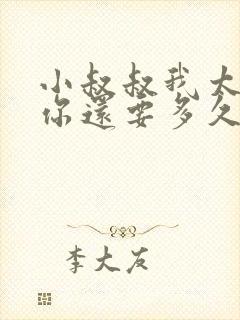 小叔叔我大
你還要多久
李大友